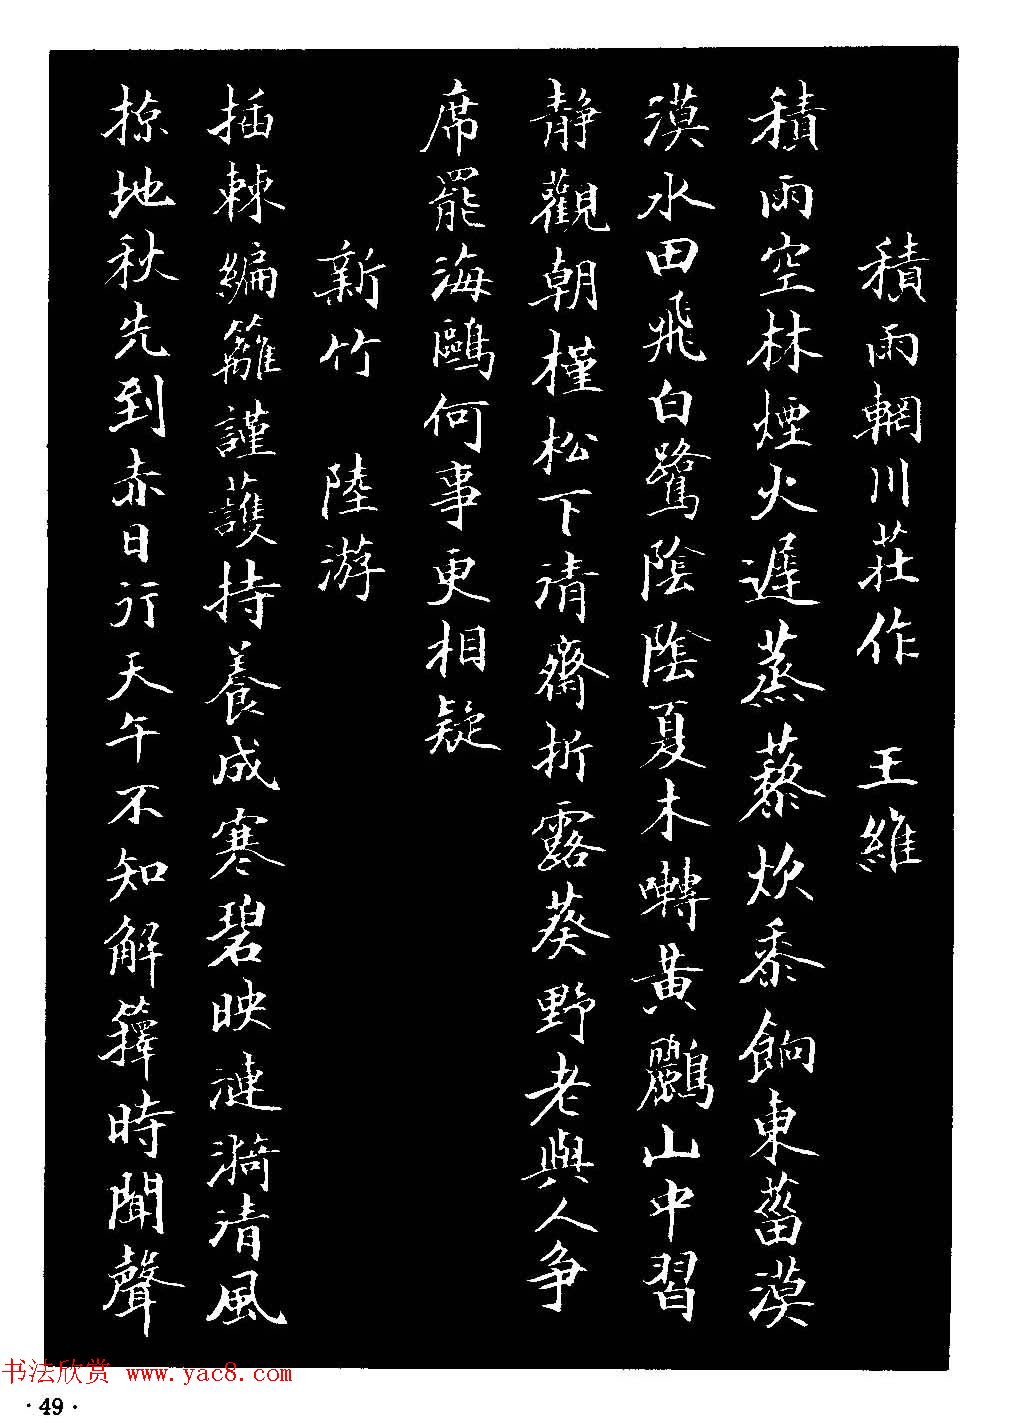 積雨輞川莊作 王維
積雨空林煙火遲蒸藜炊黍餉東菑漠
漠水田飛白鷺陰陰夏木囀黃鸝山中習
靜觀朝槿松下清齋折露葵野老與人争
席罷海鷗何事更相疑
新竹 陸游
插棘編籬謹護持養成寒碧映漣漪清風
掠地秋先到赤日行天午不知解籜時聞聲
书法欣赏 www.yac8.com
·49·